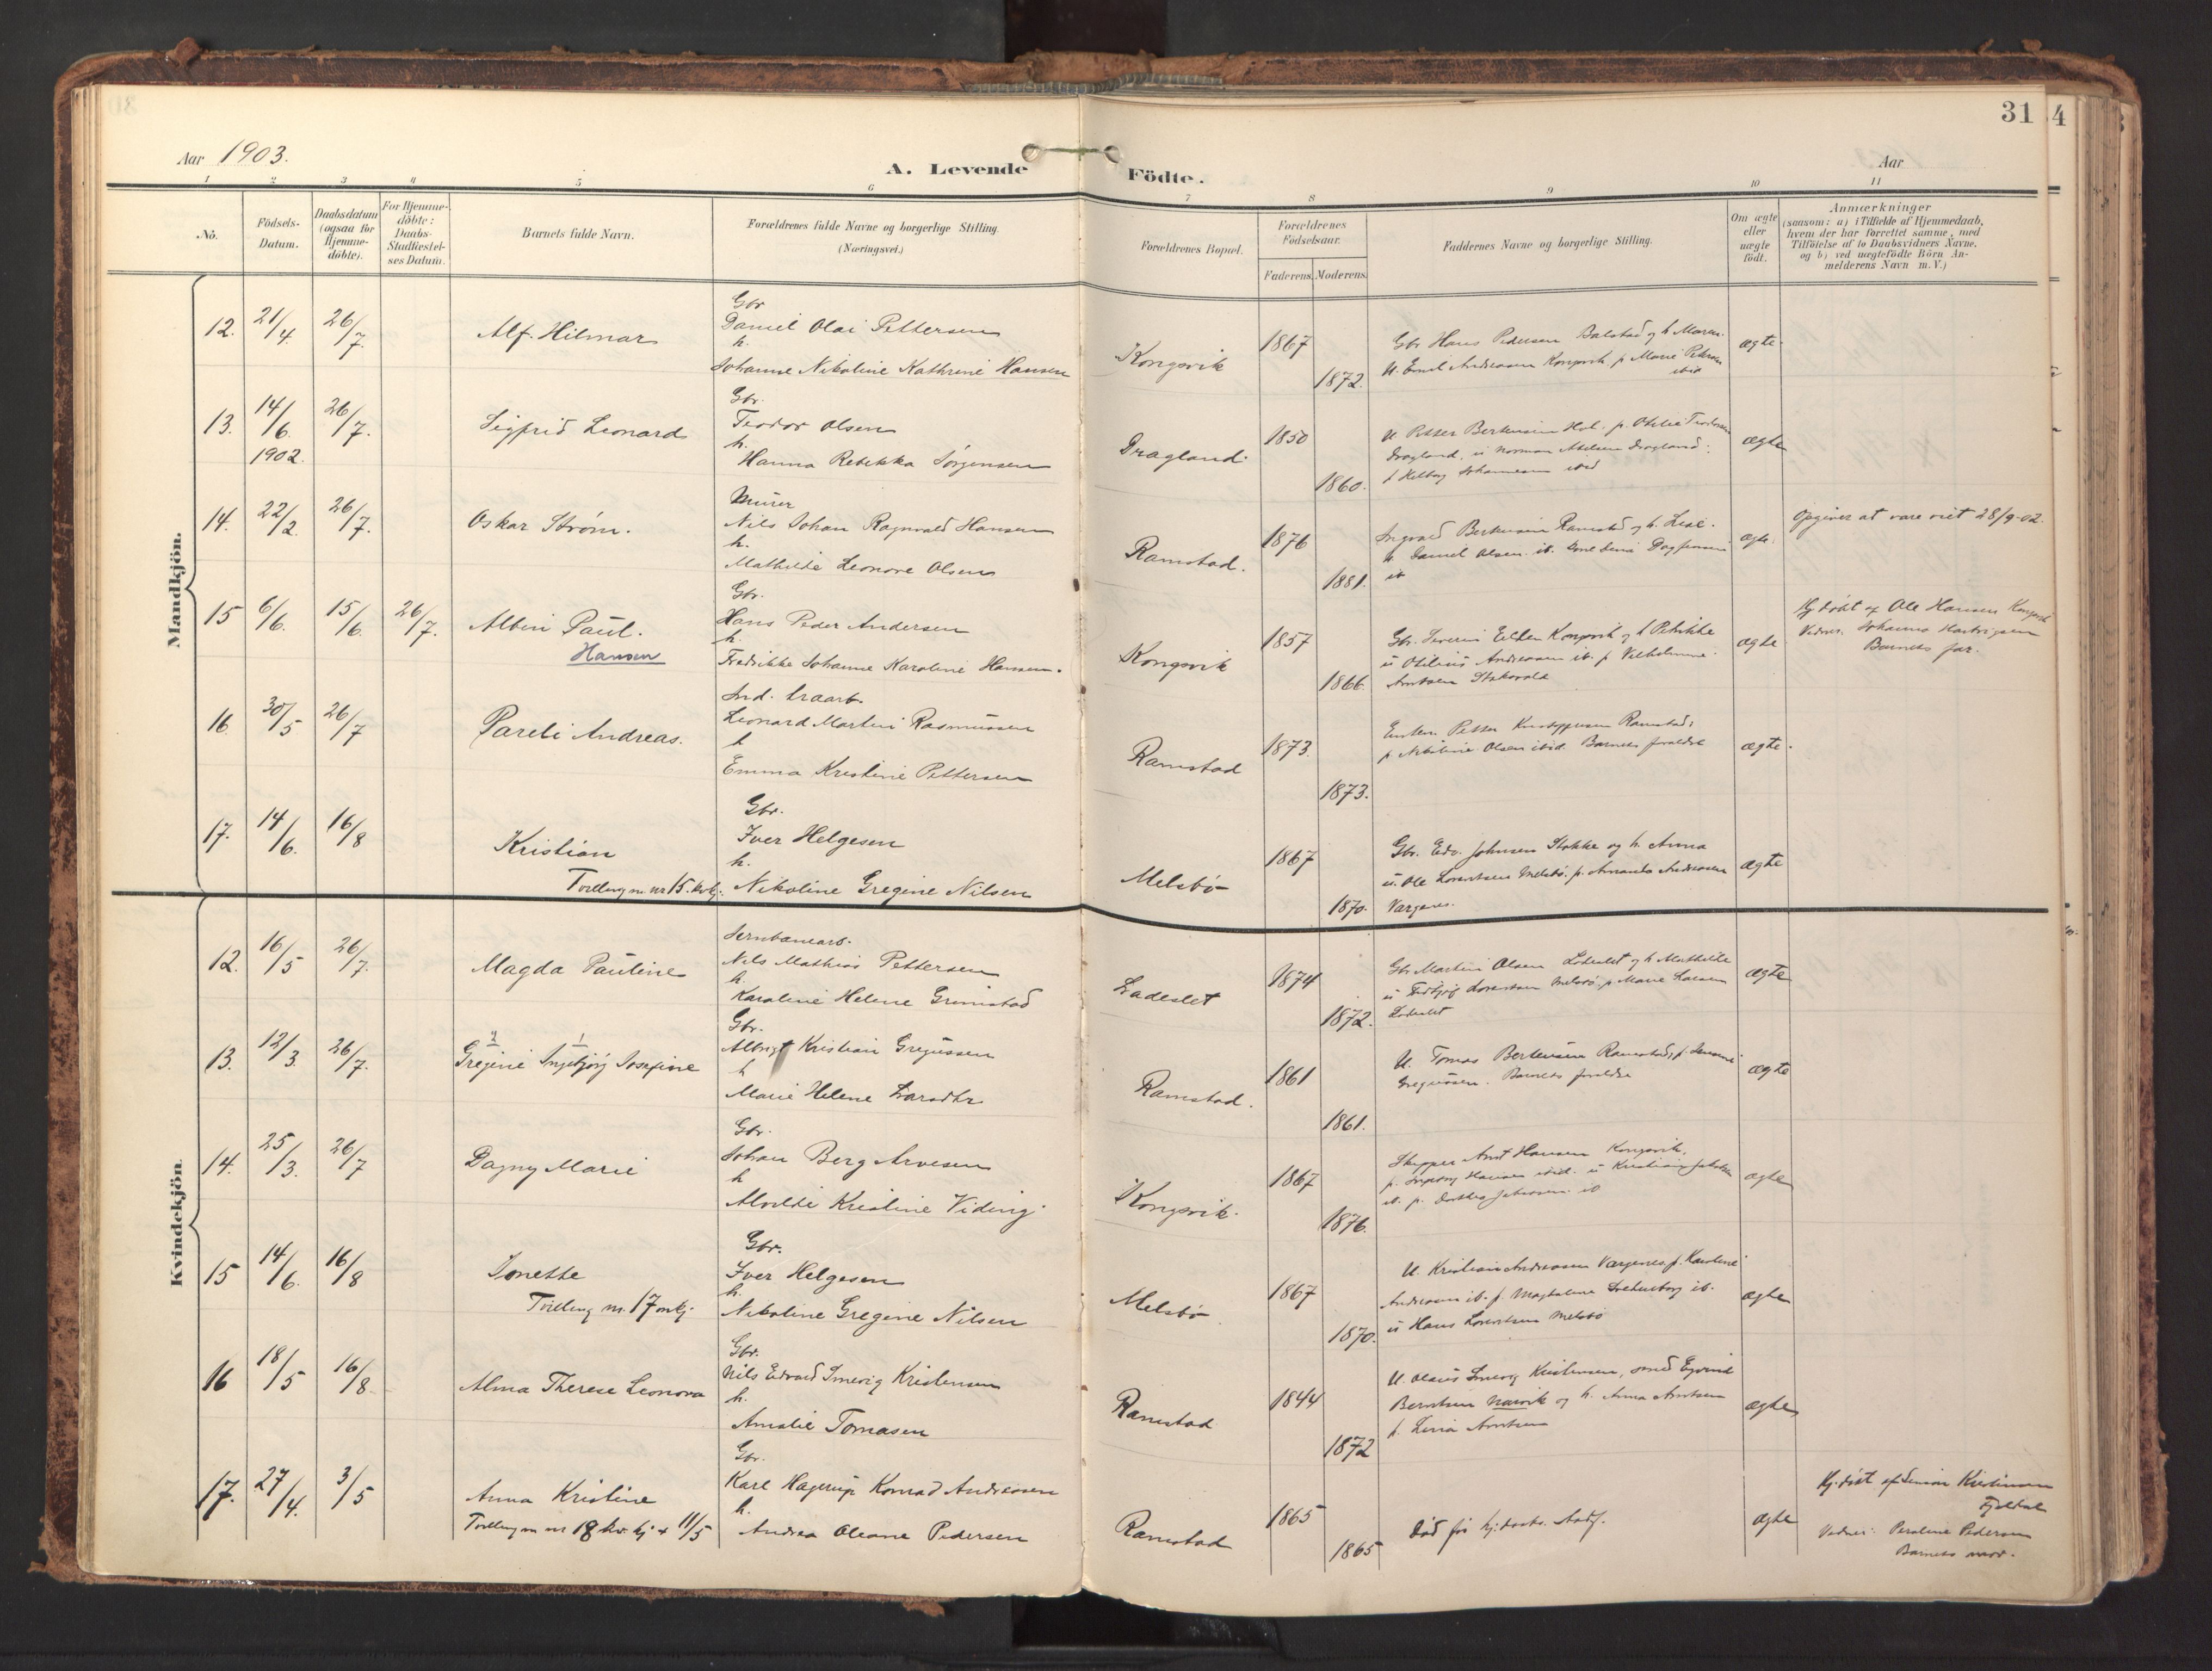 31
4
Aar 1903.
A. Levende
Födte.
Aar
1 2 3 4 5 6 7 8 9 10 11
No.
Födsels-
Datum.
Daabsdatum
(ogsaa for
Hjemme-
döbte).
For Hjemme-
döbte:
Daabs-
Stadfæstel-
ses Datum.
Barnets fulde Navn.
Forældrenes fulde Navne og borgerlige Stilling.
(Næringsvei.)
Forældrenes Bopæl.
Forældrenes
Födselsaar.
Faderens. Moderens.
Faddernes Navne og borgerlige Stilling.
Om ægte
eller
uægte
födt.
Anmærkninger
(saasom: a) i Tilfælde af Hjemmedaab,
hvem der har forrettet samme, med
Tilföielse af to Daabsvidners Navne,
og b) ved uægtefödte Börn An-
melderens Navn m.V.)
Mandkjön.
12. 21/4. 26/7. Alf. Hilmar
Gbr
Daniel Olai Pettersen
h.
Johanne Nikoline Kathrine Hansen
Kongsvik 1867 1872.
Gbr Hans Pedersen Balstad og h. Maren.
U. Emil Andreasen Kongsvik p. Marie Petersen
ibid
ægte
13. 14/6. 1902. 26/7. Sigfrid Leonard
Gbr.
Teodor Olsen
h.
Hanna Rebekka Sørgensen
Dragland. 1850 1860.
U. Petter Berthensen Hol. p. Otelie Teodorsen
Dragland, u Norman Dragland.
p Johannesen ibid
ægte
14. 22/2. 26/7. Oskar Strøm.
Murer
Nils Johan Ragnvald Hansen
h.
Mathilde Leonore Olsen
Ramstad. 1876 1881.
Ingvald Berthensen Ramstad og h. Lise.
u. Daniel Olsen ib.
ib
ægte.
Opgiver at være viet 28/9-02.
15 6/6. 15/6. 26/7. Albin Paul.
Hansen
Gbr.
Hans Peder Andersen
h.
Fredrikke Johanne Karoline Hansen.
Kongsvik 1857 1866.
Gbr. Severin Ellen Kongsvik og h Petrikke
u Otelius Andreasen ib. p Vilhelmine
Arntsen Stokvold
ægte
Hj. døbt af Ole Hansen Kongsvik
Vidner. Johanna Hartvigsen
Barnets far.
16 30/5 26/7 Pareli Andreas.
Ind. traarb.
Leonard Martin Rasmussen
h
Emma Kristine Pettersen
Ramstad 1873. 1873.
Petter Ramstad,
p Nikoline Olsen ibid. Barnets forældre
ægte.
17. 14/6. 16/8 Kristian
Tvilling m. nr 15. kvkj.
Gbr.
Iver Helgesen
h.
Nikoline Gregine Nilsen
Melsbø 1867 1870.
Gbr. Edv. Johnsen Stokke og h. Anna
u. Ole Lorentsen Melsbø. p. Amanda Andreasen
Vargenes.
ægte
Kvindekjön.
12. 16/5 26/7. Magda Pauline
Jernbanearb.
Nils Mathias Pettersen
h.
Karoline Helene Grimstad
Ladeslet 1874 1872.
Gbr Martin Olsen Ladeslet og h Mathilde
u Fridtjof Lorentsen Melsbø. p Marie Larsen
Ladeslet
ægte
13. 12/3. 26/7. 2 1
Gregine Ingebjørg Josefine
Gbr.
Albrigt Kristian Gregussen
h
Marie Helene Larsdtr
Ramstad. 1861 1861.
U. Tomas Berthensen Ramstad, p Jensine
Gregussen. Barnets forældre
ægte
14. 25/3. 26/7 Dagny Marie
Gbr.
Johan Berg Arvesen
h
Alvilde Kristine Viding.
Kongsvik. 1867 1876.
Skipper Arnt Hansen Kongsvik,
p. Ingeborg Hansen ibid. u Kristian Jakobsen
ib. p. Dorthea Jakobsen ib
ægte
15 14/6. 16/8 Jonette
Tvilling m. 17 mkj.
Gbr.
Iver Helgesen
h.
Nikoline Gregine Nilsen
Melsbø 1867 1870.
U. Kristian Andreasen Vargenes. p. Karoline
Andreasen ib. p Magdalene ib.
u Hans Lorentsen Melsbø
ægte
16 18/5 16/8. Alma Therese Leonora
Gbr.
Nils Edvard Smevig Kristensen
h.
Amalie Tomasen
Ramstad 1844 1872
U. Olaus Smevig Kristensen, smed Eyvind
Berntsen Narvik og h. Anna Arntsen
p. Lina Arntsen
ægte
17. 27/4. 3/5 Anna Kristine
Tvilling m nr 18 kv. kj + 11/5
Gbr.
Karl Hagerup Konrad Andreasen
h.
Andrea Oleane Pedersen
Ramstad 1865 1865
Død før hj. daabs. stadf.
ægte
Hj. døbt af Simon Kristiansen
Fjeldal
Vidner: Peroline Pedersen
Barnets mor.